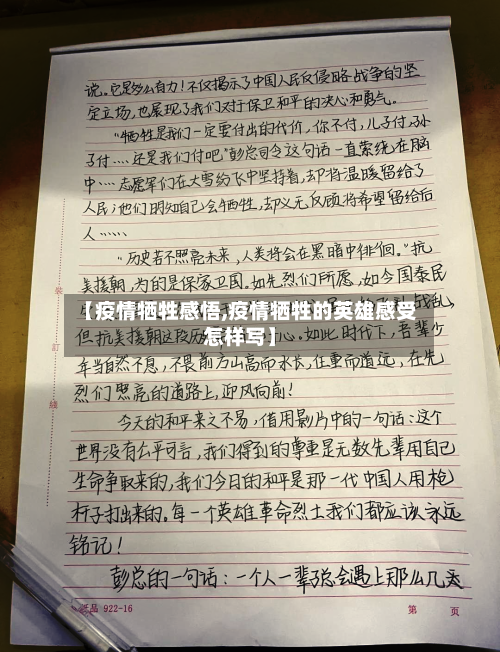 说。它是多么有力！不仅揭示了中国人民反侵略战争的坚
定立场，也展现了我们对于保卫和平的决心和勇气。
“牺牲是我们一定要付出的代价，你不付，儿子付，孙
子付……还是我们付吧”彭总司令这句话一直萦绕在脑
中……志愿军们在大雪纷飞中坚持着，却将温暖留给了
人民；他们明知自己会牺牲，却义无反顾将希望留给后
人……
“历史若不照亮未来，人类将会在黑暗中徘徊。”抗
美援朝，为的是保家卫国。如先烈们所愿，如今国泰民
战乱，
【疫情牺牲感悟,疫情牺牲的英雄感受
怎样写】
但抗美援朝这段历
心。如此时代下，吾辈少
年当自然不息，不畏前方山高而水长，任重而道远，在先
烈们照亮的道路上，迎风向前！
今天的和平来之不易，借用影片中的一句话：这个
世界没有公平可言，我们得到的尊重是无数先辈用自己
生命争取来的，我们今日的和平是那一代中国人用枪
杆子打出来的。每一个英雄革命烈士我们都应该永远
铭记！
彭总的一句话：一个人一辈子总会遇上那么几
装
订
线
品 922-16
第 页